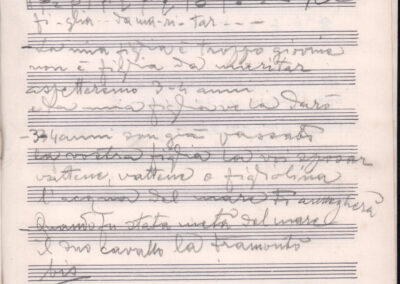 fi - glia - da ma - ri - tar - - -
- La mia figlia è troppo giovine
non è figlia da maritar
aspetteremo 3-4 anni
e la mia figlia ve la darò
- 3-4 anni son già passati
la vostra figlia la vo sposar
vattene, vattene o figliolina
l'acqua del mare ti annegherà
- Quando fu stata metà del mare
il suo cavallo la tramontò
bis